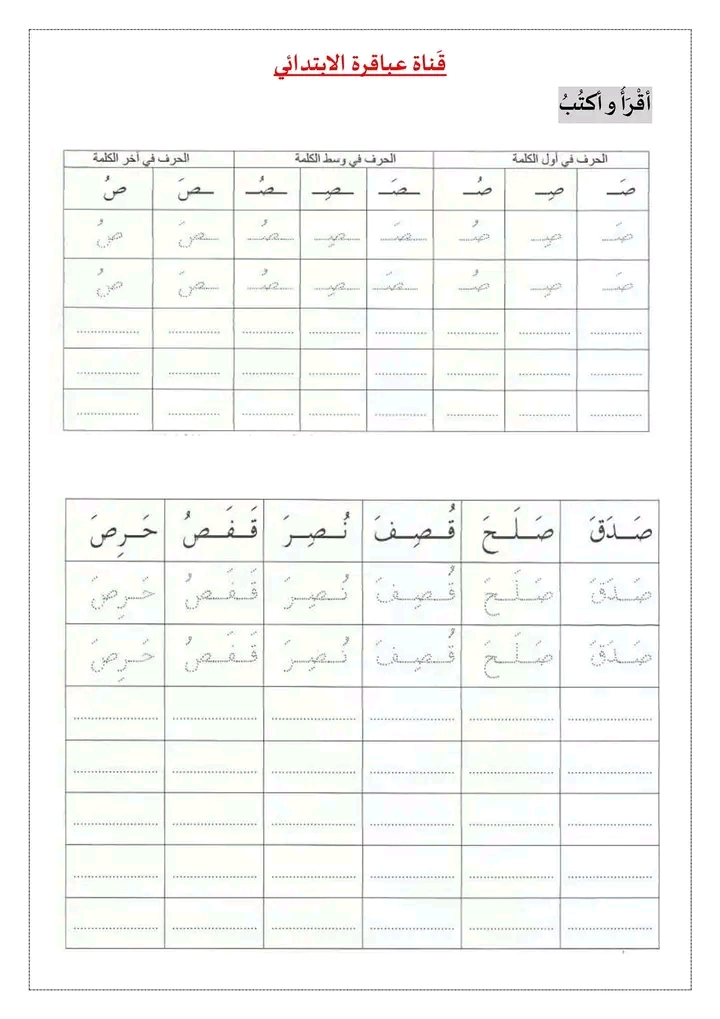 قَناة عباقرة الابتدائي
أقْرَأُ و أكتُبُ
الحرف في أول الكلمة الحرف في وسط الكلمة الحرف في آخر الكلمة
صَـ صِـ صُـ ـصَـ ـصِـ ـصُـ ـصَ صُ
صَـ صِـ صُـ ـصَـ ـصِـ ـصُـ ـصَ صُ
صَـ صِـ صُـ ـصَـ ـصِـ ـصُـ ـصَ صُ
صَـدَقَ صَـلَـحَ قُـصِـفَ نُـصِـرَ قَـفَـصُ حَـرِصَ
صَـدَقَ صَـلَـحَ قُـصِـفَ نُـصِـرَ قَـفَـصُ حَـرِصَ
صَـدَقَ صَـلَـحَ قُـصِـفَ نُـصِـرَ قَـفَـصُ حَـرِصَ